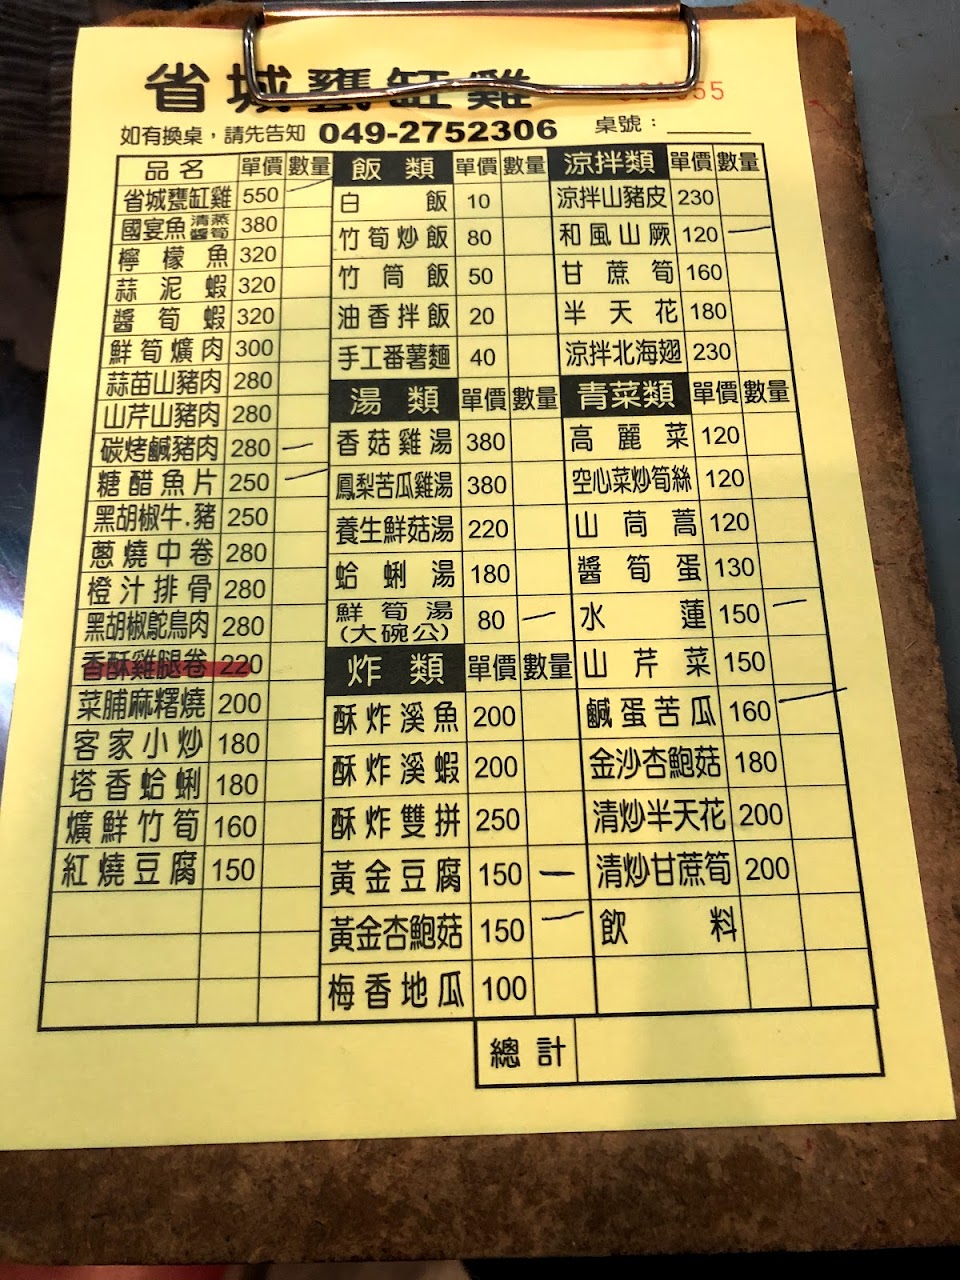 省城甕缸雞
如有換桌，請先告知 049-2752306 桌號：
品名 單價 數量
省城甕缸雞 550 一
國宴魚 清蒸 醬筍 380
檸檬魚 320
蒜泥蝦 320
醬筍蝦 320
鮮筍爌肉 300
蒜苗山豬肉 280
山芹山豬肉 280
碳烤鹹豬肉 280 一
糖醋魚片 250 一
黑胡椒牛.豬 250
蔥燒中卷 280
橙汁排骨 280
黑胡椒鴕鳥肉 280
香酥雞腿卷 220
菜脯麻糬燒 200
客家小炒 180
塔香蛤蜊 180
爌鮮竹筍 160
紅燒豆腐 150
飯類 單價 數量
白飯 10
竹筍炒飯 80
竹筒飯 50
油香拌飯 20
手工番薯麵 40
湯類 單價 數量
香菇雞湯 380
鳳梨苦瓜雞湯 380
養生鮮菇湯 220
蛤蜊湯 180
鮮筍湯
(大碗公) 80 一
炸類 單價 數量
酥炸溪魚 200
酥炸溪蝦 200
酥炸雙拼 250
黃金豆腐 150 一
黃金杏鮑菇 150 一
梅香地瓜 100
涼拌類 單價 數量
涼拌山豬皮 230
和風山厥 120 一
甘蔗筍 160
半天花 180
涼拌北海翅 230
青菜類 單價 數量
高麗菜 120
空心菜炒筍絲 120
山茼蒿 120
醬筍蛋 130
水蓮 150 一
山芹菜 150
鹹蛋苦瓜 160 一
金沙杏鮑菇 180
清炒半天花 200
清炒甘蔗筍 200
飲料
總計